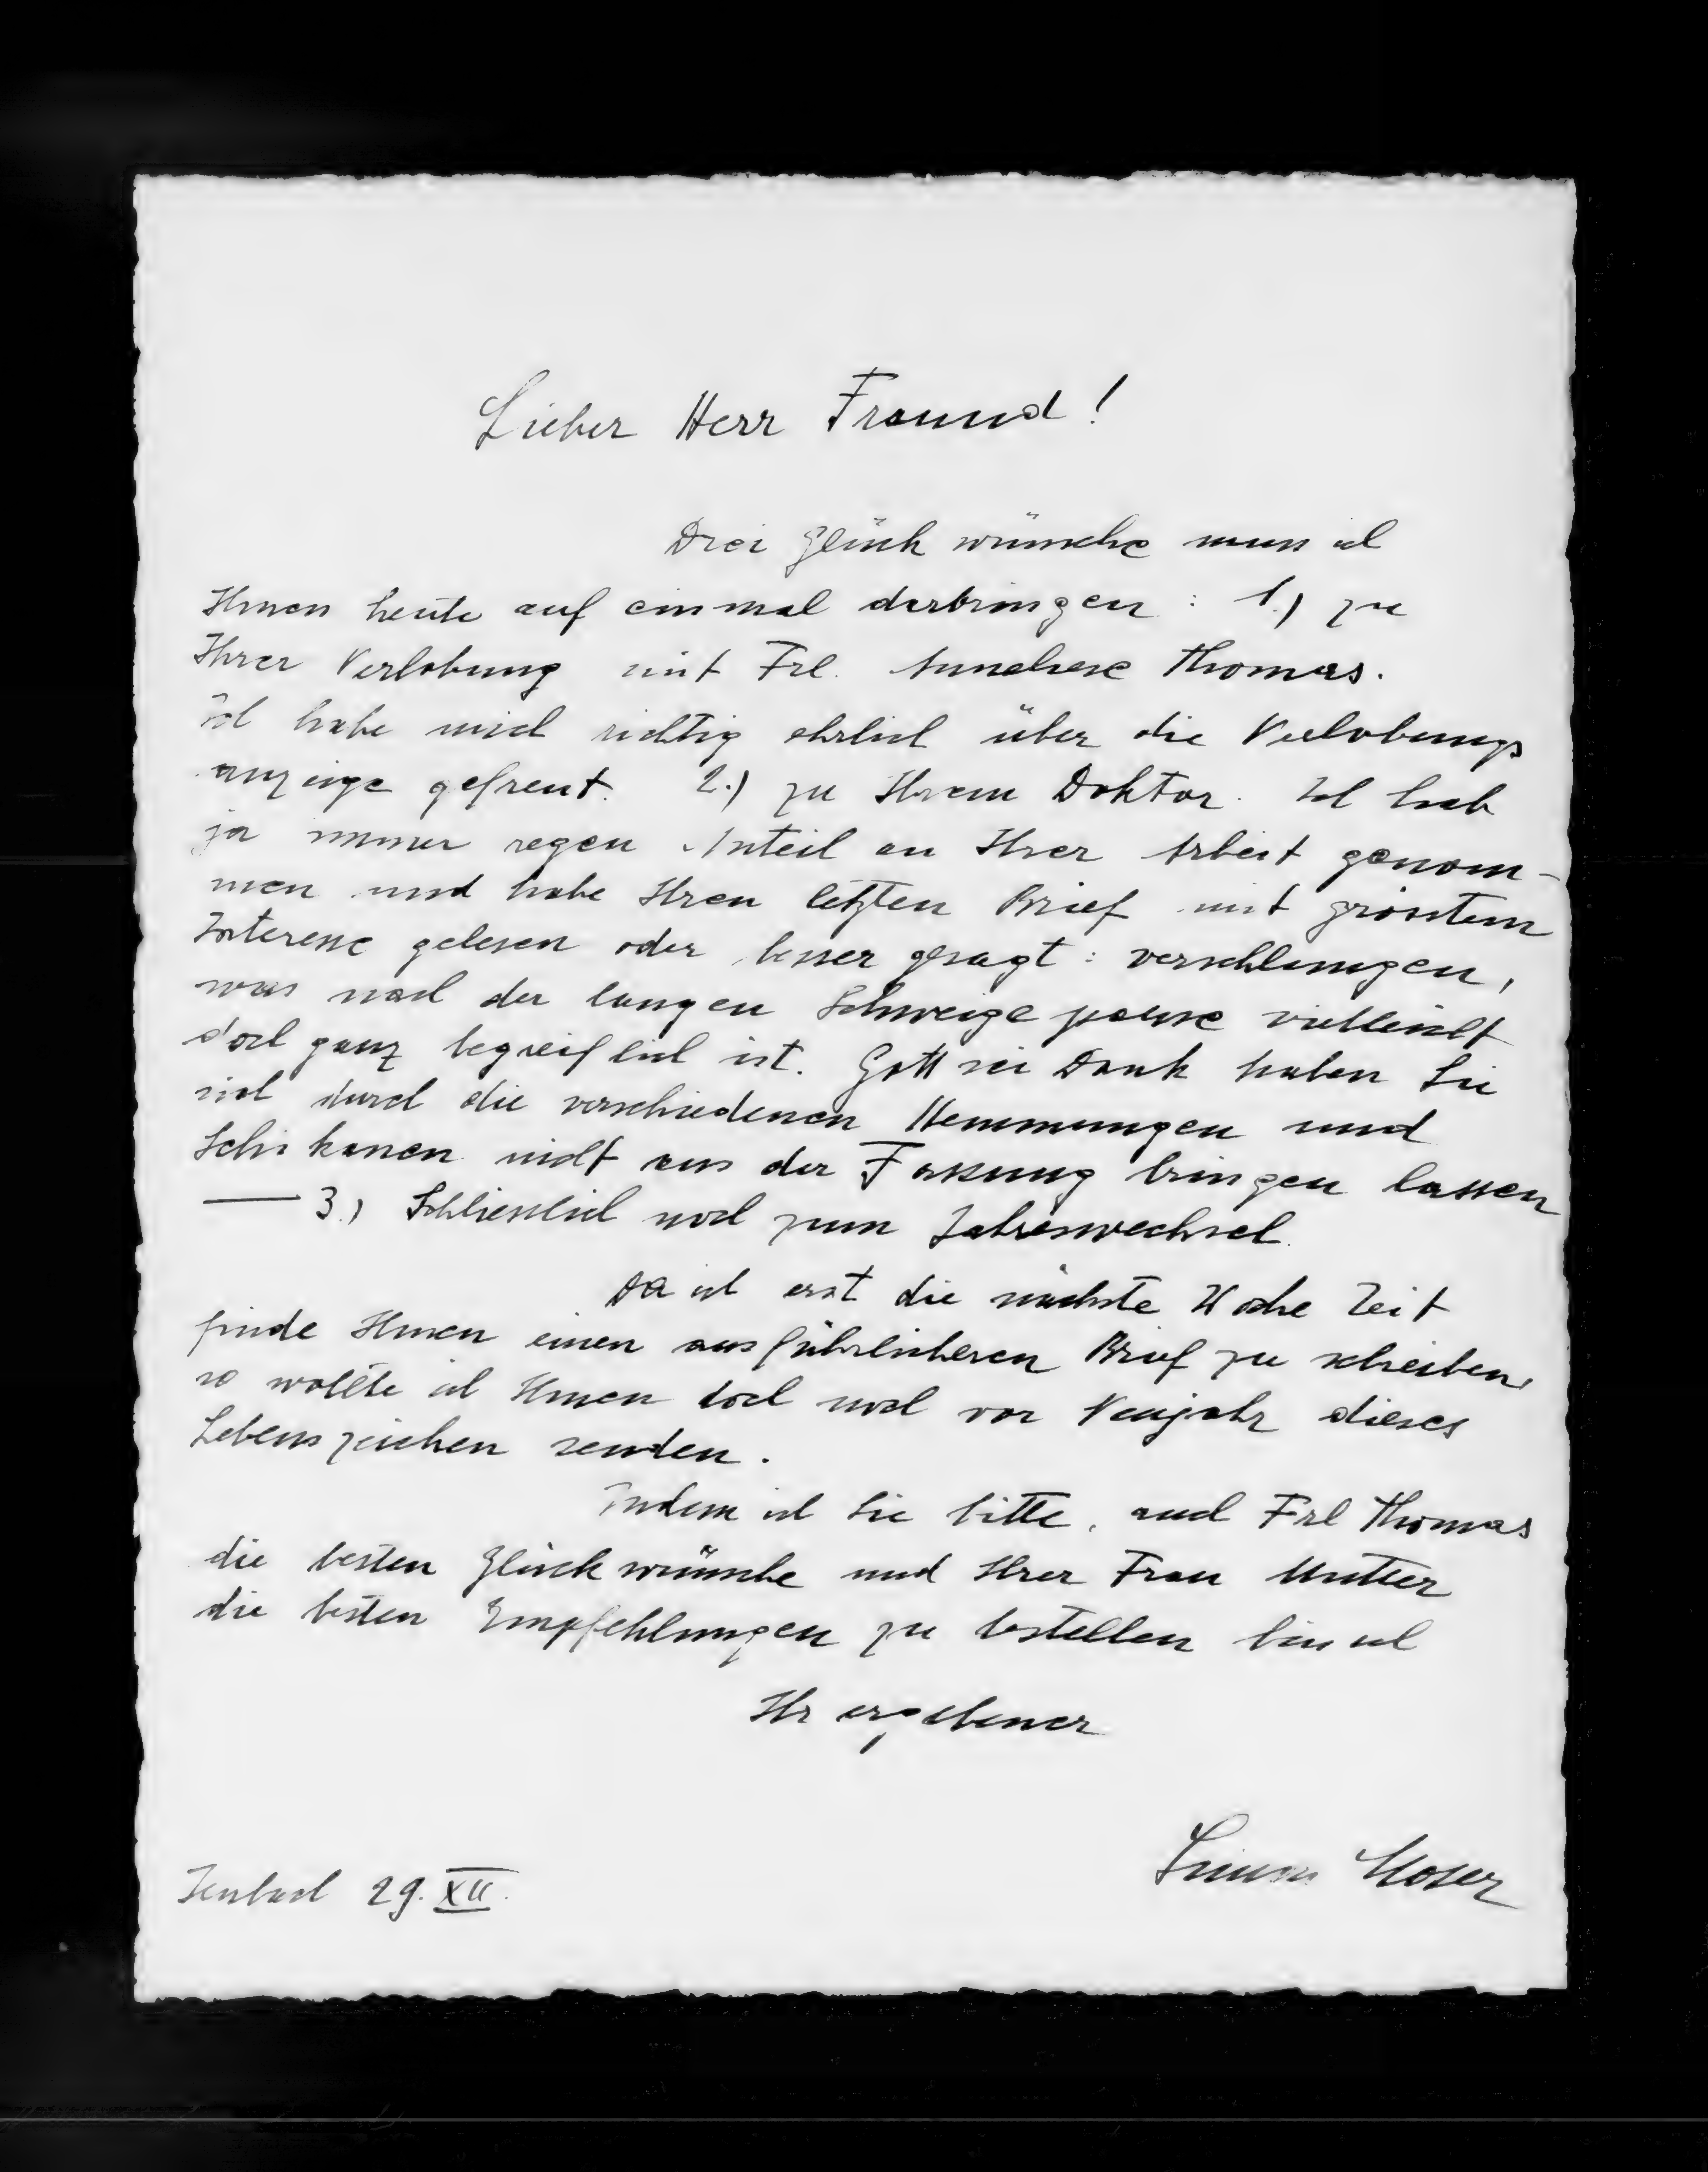 Lieber Herr Fraund!
Drei Glückwünsche muss ich
Ihnen heute auf einmal darbringen: 1.) zu
Ihrer Verlobung mit Frl. Anneliese Thomas.
Ich habe mich richtig ehrlich über die Verlobungs
anzeige gefreut. 2.) zu Ihrem Doktor. Ich hab
ja immer regen Anteil an Ihrer Arbeit genom-
men und habe Ihren letzten Brief mit grösstem
Interesse gelesen oder besser gesagt: verschlungen,
was nach der langen Schweigepause vielleicht
doch ganz begreiflich ist. Gott sei Dank haben Sie
sich durch die verschiedenen Hemmungen und
Schikanen nicht aus der Fassung bringen lassen
— 3.) Schliesslich noch zum Jahreswechsel.
Da ich erst die nächste Woche Zeit
finde Ihnen einen ausführlicheren Brief zu schreiben,
so wollte ich Ihnen doch noch vor Neujahr dieses
Lebenszeichen senden.
Indem ich Sie bitte, auch Frl Thomas
die besten Glückwünsche und Ihrer Frau Mutter
die besten Empfehlungen zu bestellen bin ich
Ihr ergebener
Simon Moser
Jenbach 29. XII.